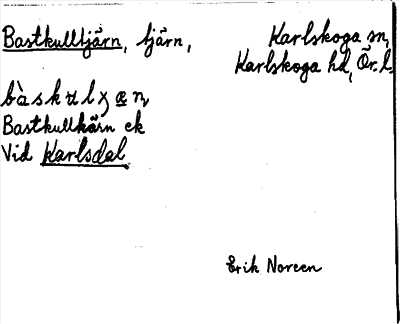 Bastkulltjärn, tjärn, Karlskoga sn,
Karlskoga hd, Ör. l.
bàskʉlʒæn
Bastkullkärn ek
Vid Karlsdal
Erik Noreen